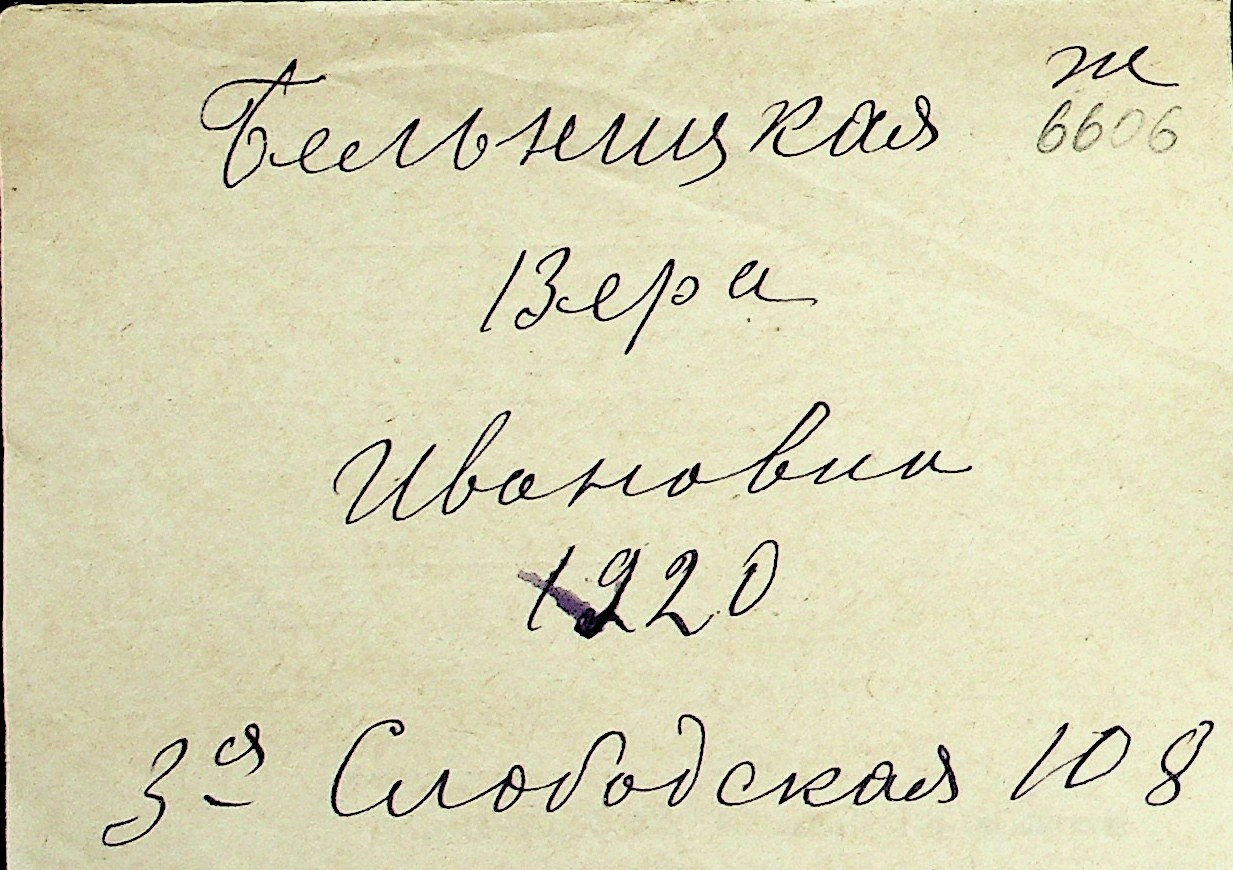 Бельницкая ж
6606
Вера
Ивановна
1920
3я Слободская 108